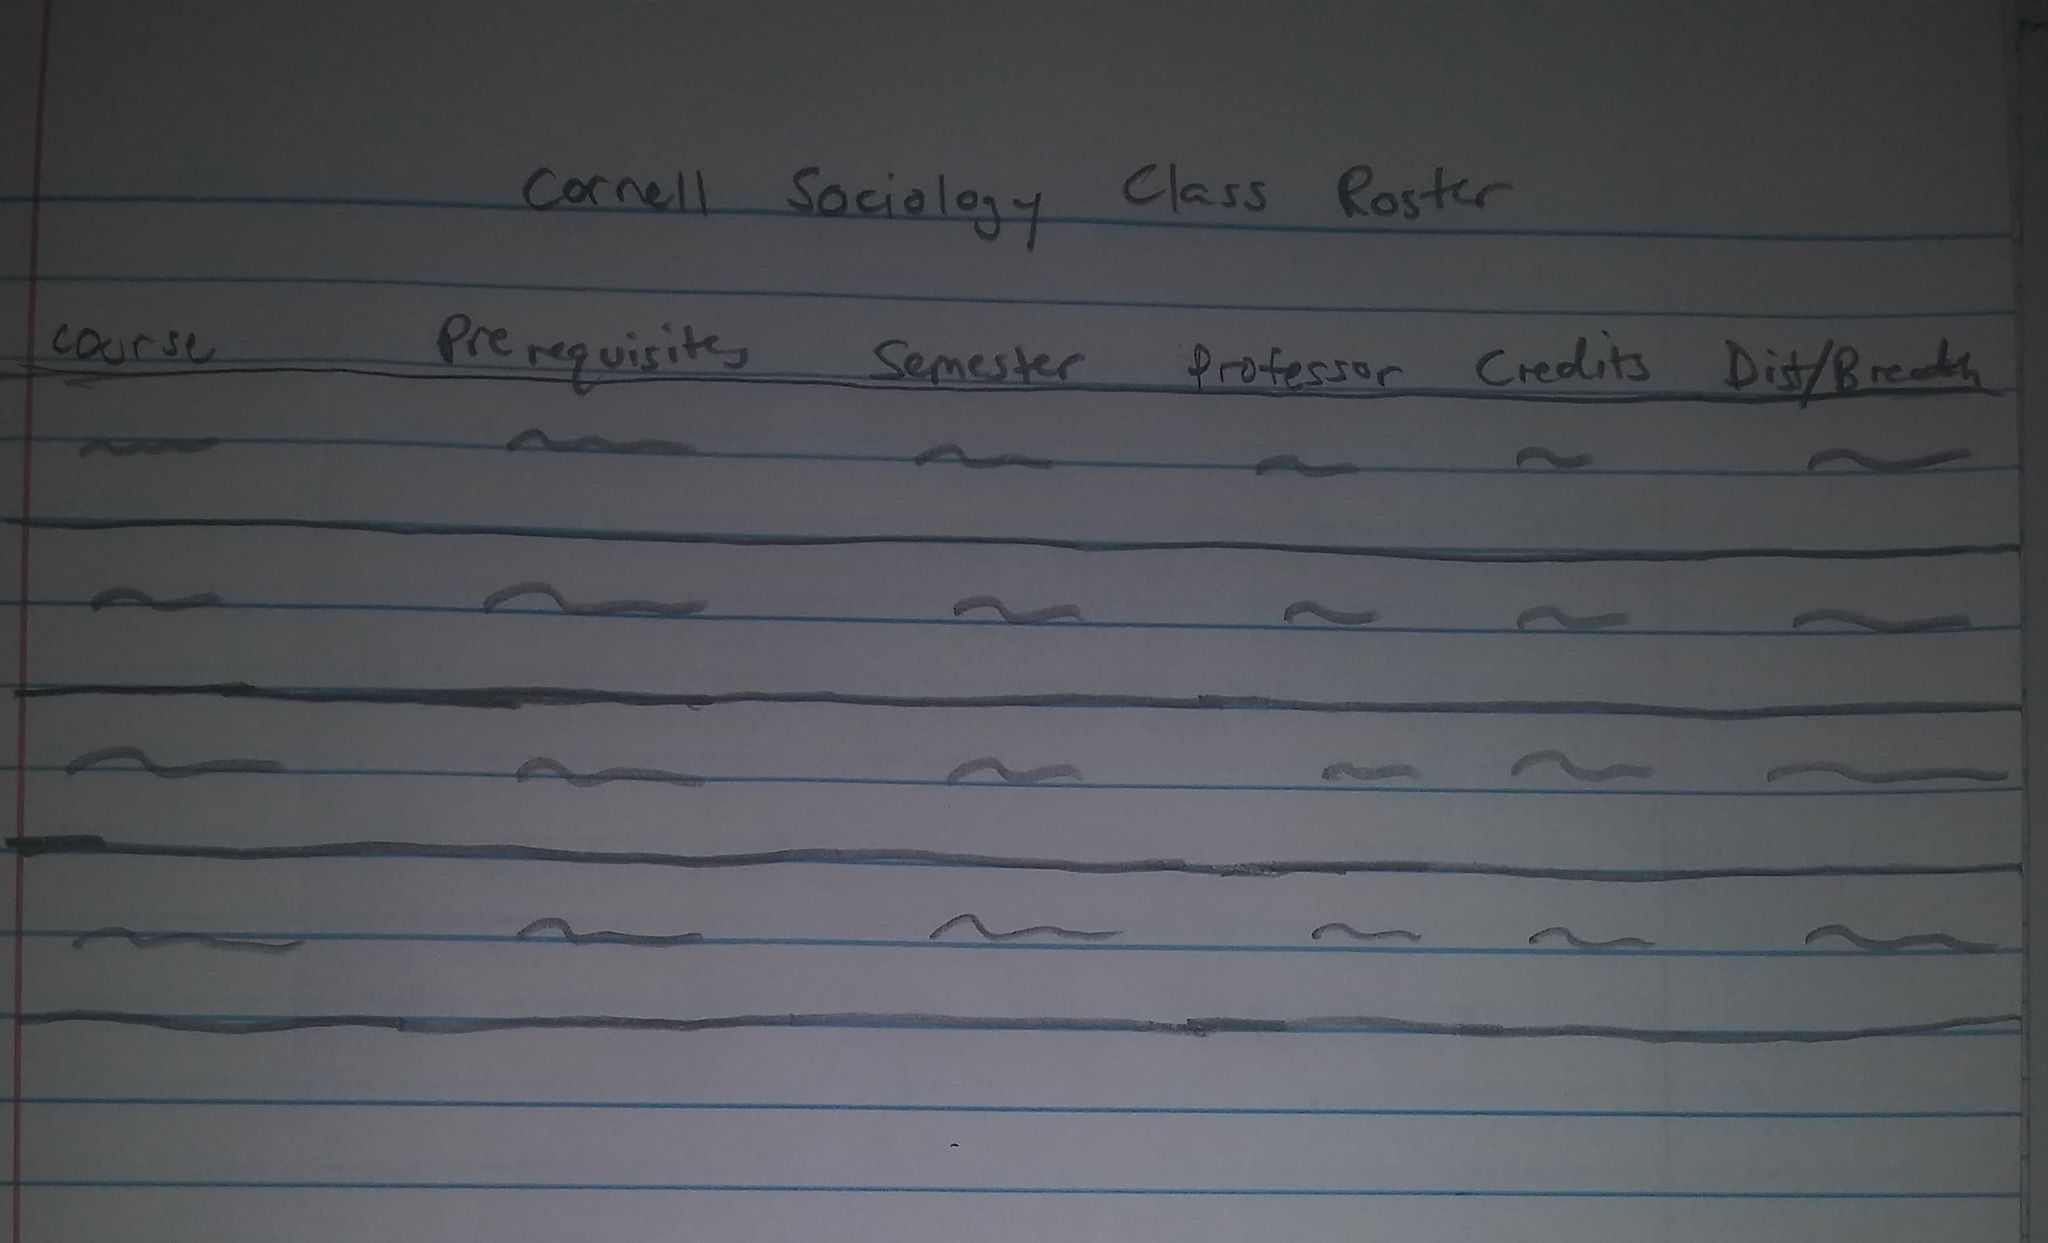 Cornell Sociology Class Roster
course Prerequisites Semester Professor Credits Dist/Breadth